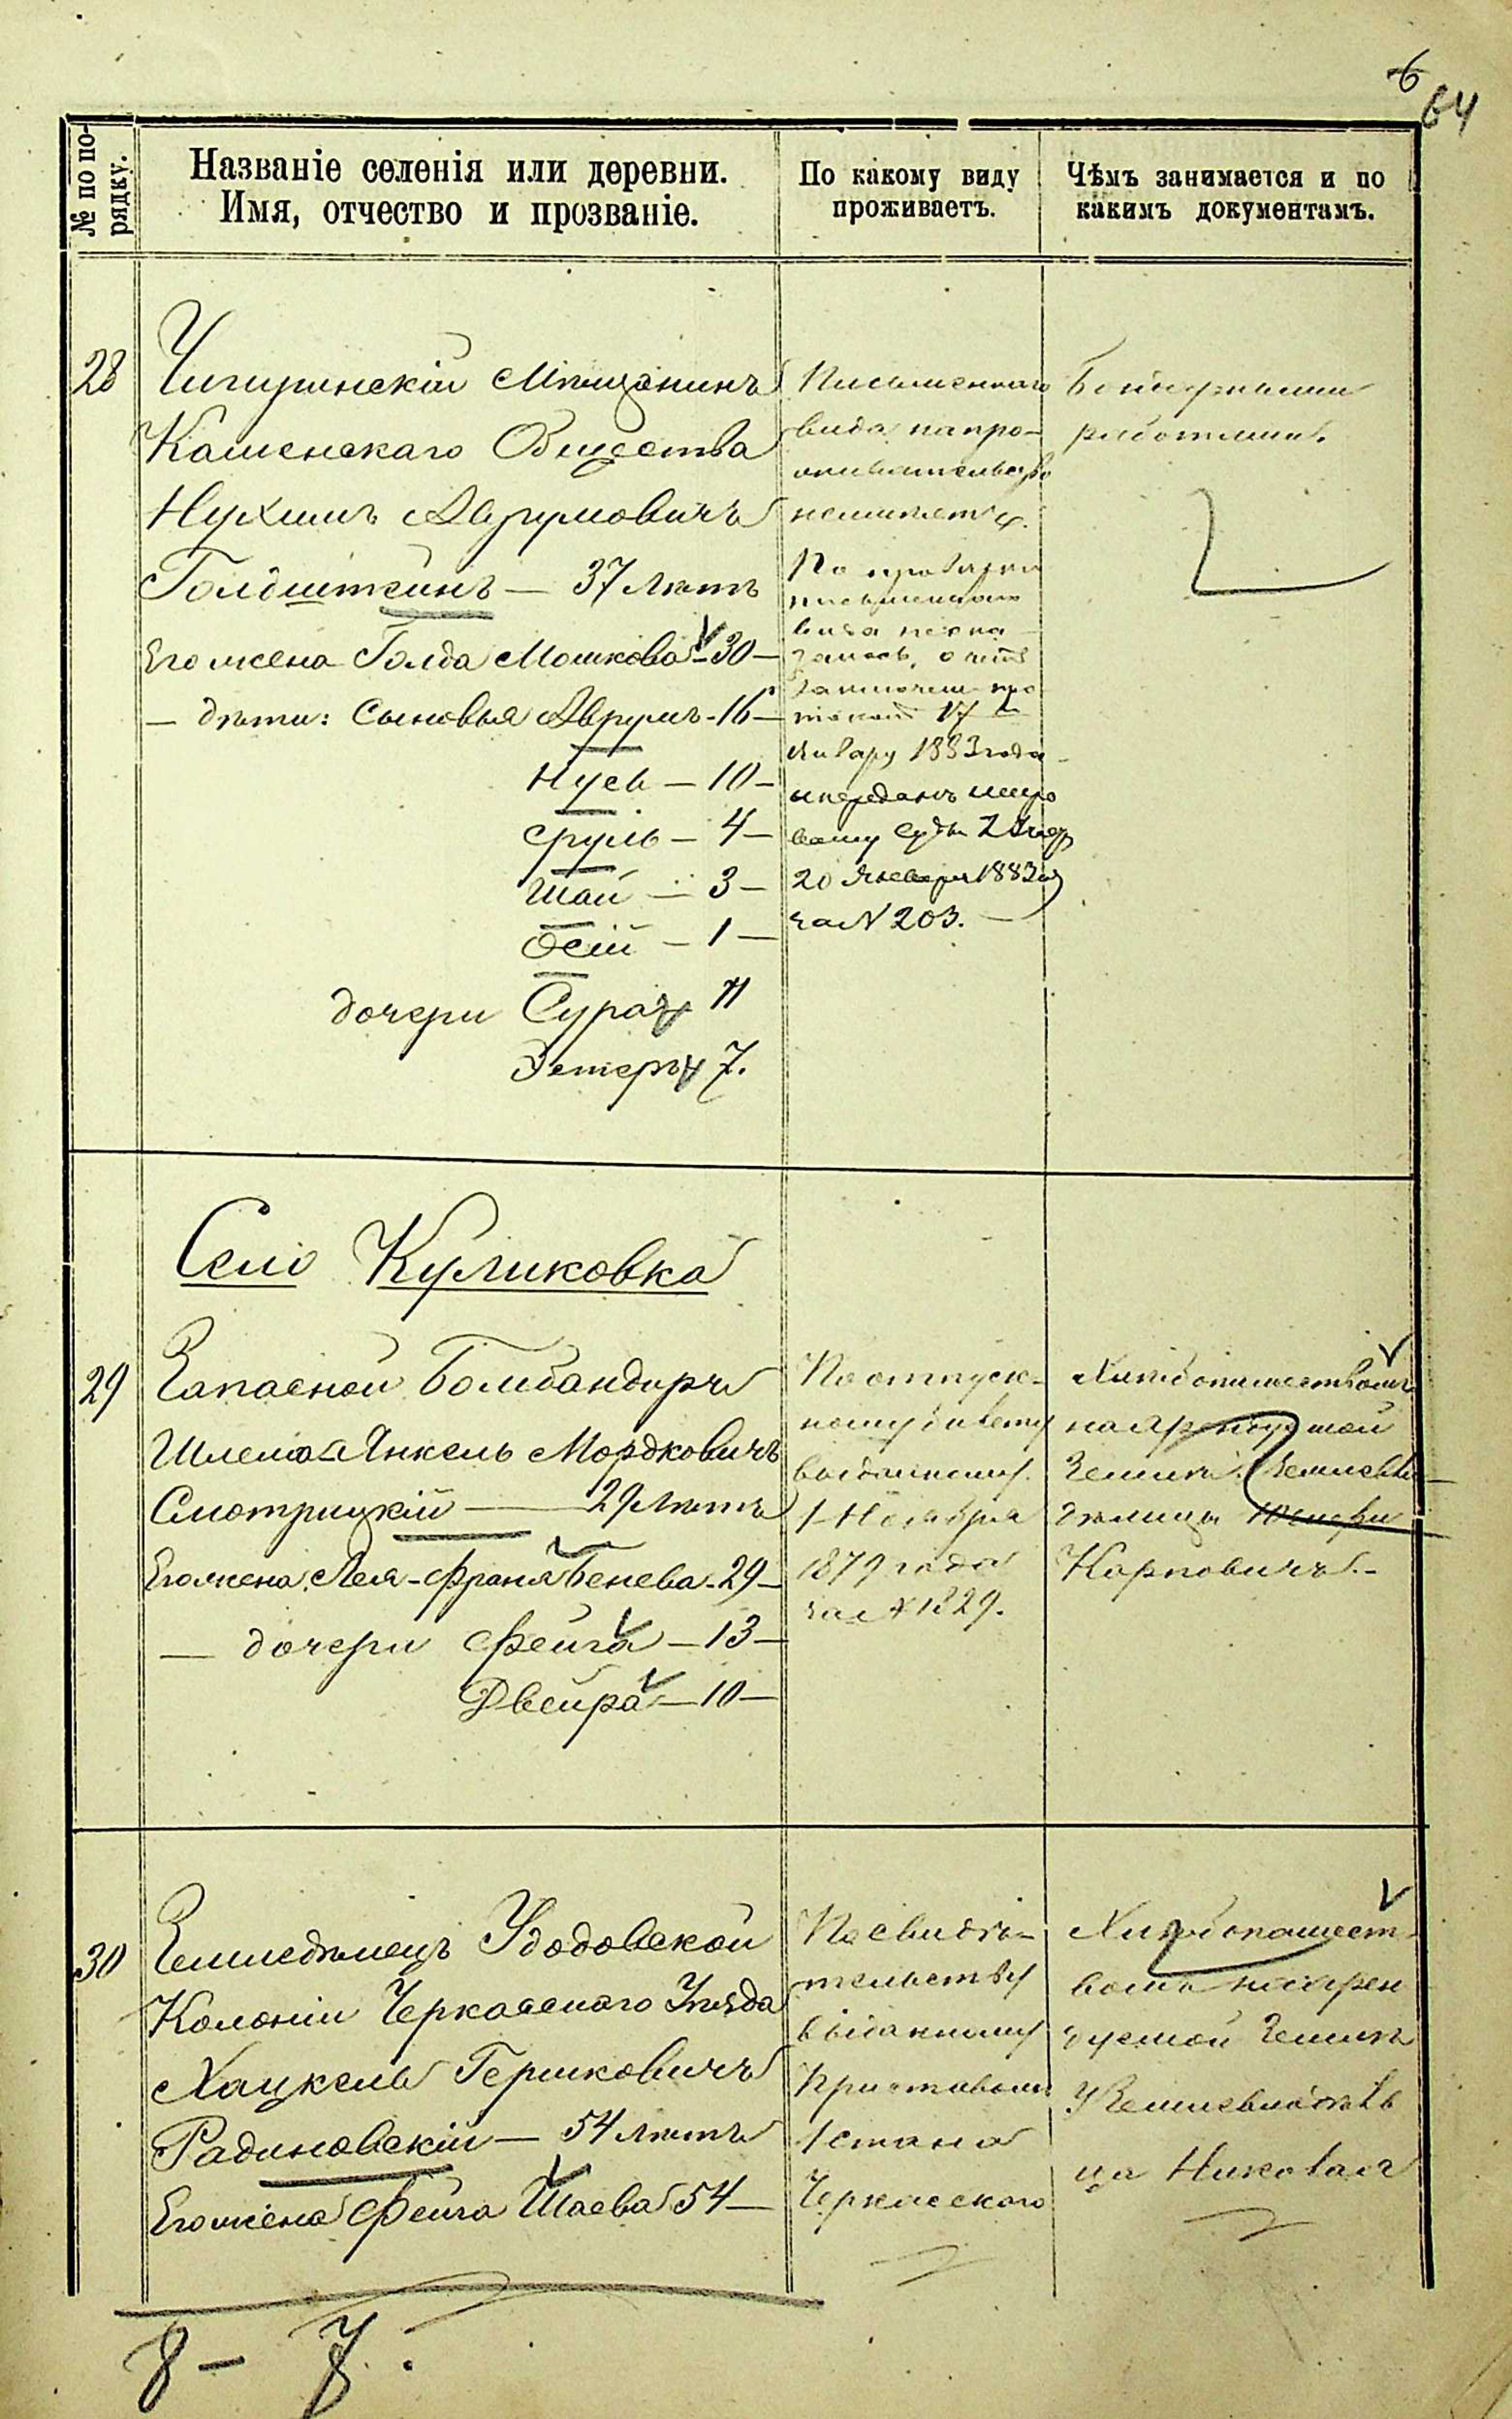 6
64
№ по по-
рядку.
Названіе селенія или деревни.
Имя, отчество и прозваніе.
По какому виду
проживаетъ.
Чѣмъ занимается и по
какимъ документамъ.
28
Чигиринскій Мѣщанинъ
Каменскаго Общества
Нухимъ Аврумовичъ
Голдштеинъ — 37 лѣтъ
Его жена Голда Мошкова — 30 —
— дѣти: Сыновья Аврумъ - 16 —
Нусь — 10 —
Сруль — 4 —
Шаи — 3 —
Осій — 1 —
дочери Сура 11
Эстеръ 7.
Письменнаго
вида на про-
живательство
неимѣетъ.
По проверки
письменнаго
вида неока-
залось, о чемъ
протоколъ 17
Январу 1883 года
и переданъ миро
вому Судьѣ 2
20 Января 1883
за N 203. —
работами.
Село Куликовка
29
Запасной Бомбандиръ
Шлема-Янкель Мордковичъ
Смотрицкій — 29 лѣтъ
Его жена Лея-Франя Бенева - 29 —
— дочери Фейга — 13 —
Двейра — 10 —
По отпуск-
ному билету
выданному
1 Ноября
1879 года
за N 1829.
Хлѣбопашествомъ
на арендуемой
Земли Землевла-
дѣлицы
Карповичъ. -
30
Земледѣлецъ Удодовской
Колоніи Черкасскаго Уѣзда
Хацкель Гершковичъ
Радиновскій — 54 лѣтъ
Его жена Фейга Шаева 54 —
По свидѣ-
тельству
выданному
Приставомъ
1 стана
Черкасскаго
Хлѣбопашест-
вомъ на арен
дуемой Земли
У Землевладѣль
ца Николая
8 — 7.
8